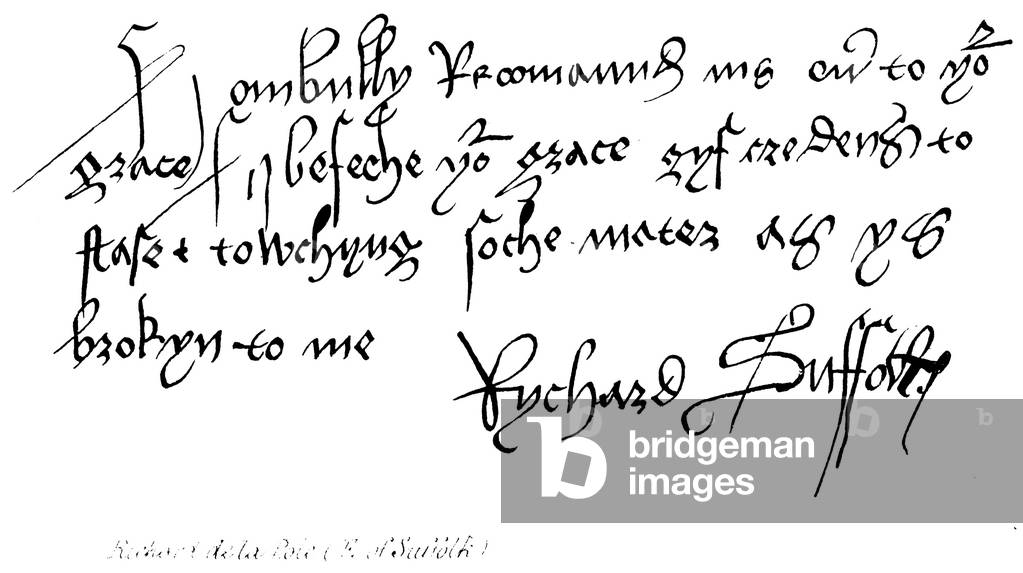 Hombully Recomaund me on to yor
grace I beseche yor grace gyf credens to
towchyng soche mater as ys
brokyn to me
Rychard Suffolk
bridgeman
images
Richard de la Pole (E. of Suffolk)